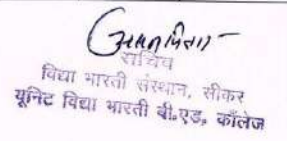 सचिव
विद्या भारती संस्थान, सीकर
यूनिट विद्या भारती बी.एड. कॉलेज